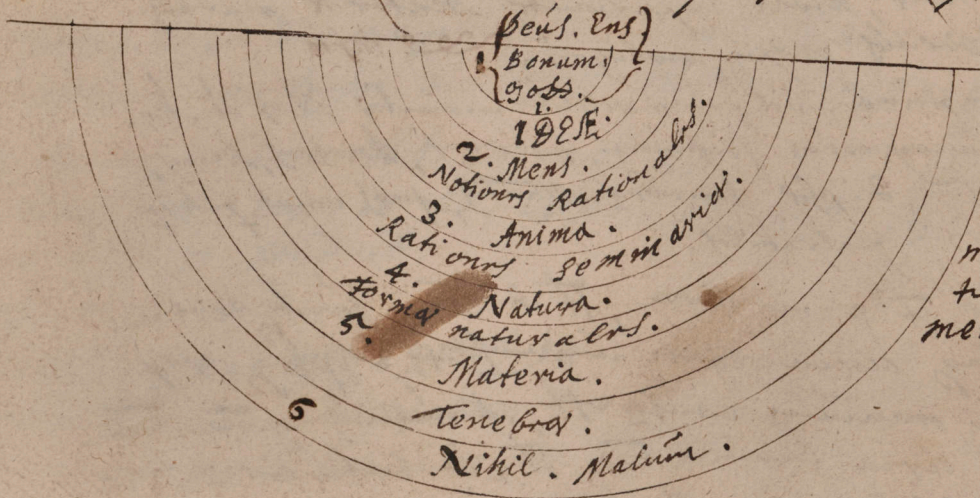 Deus. Ens
1 Bonum.
Gott.
1.
IDEÆ.
2. Mens.
Notiones Rationales.
3. Anima.
Rationes Seminariæ.
4. Natura.
Formæ naturales.
5.
Materia.
Tenebræ.
6 Nihil. Malum.
me